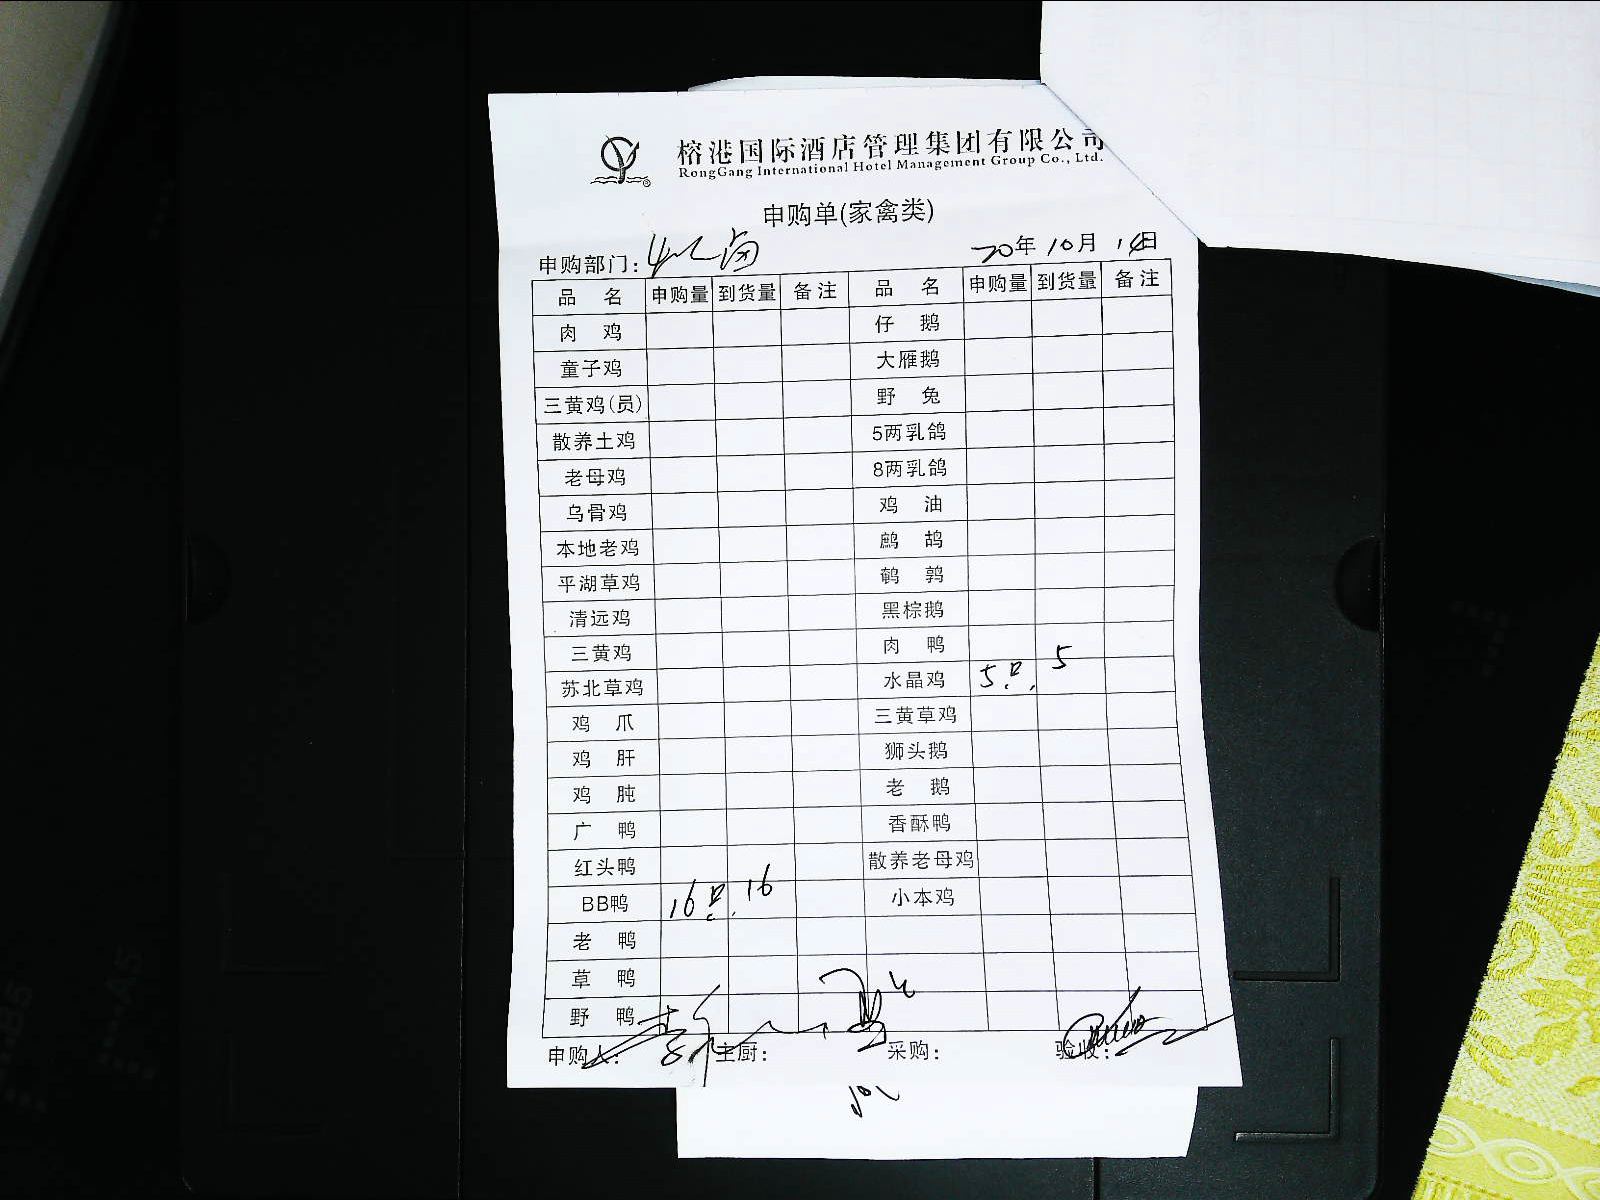 榕港国际酒店管理集团有限公司
RongGang International Hotel Management Group Co., Ltd.
申购单(家禽类)
申购部门: 20年10月14日
品 名 申购量 到货量 备注 品 名 申购量 到货量 备注
肉 鸡 仔 鹅
童子鸡 大雁鹅
三黄鸡(员) 野 兔
散养土鸡 5两乳鸽
老母鸡 8两乳鸽
乌骨鸡 鸡 油
本地老鸡 鹧 鸪
平湖草鸡 鹌 鹑
清远鸡 黑棕鹅
三黄鸡 肉 鸭
苏北草鸡 水晶鸡 5只. 5
鸡 爪 三黄草鸡
鸡 肝 狮头鹅
鸡 肫 老 鹅
广 鸭 香酥鸭
红头鸭 散养老母鸡
BB鸭 16只. 16 小本鸡
老 鸭
草 鸭
野 鸭
申购人: 主厨: 采购: 验收:
B5
A5